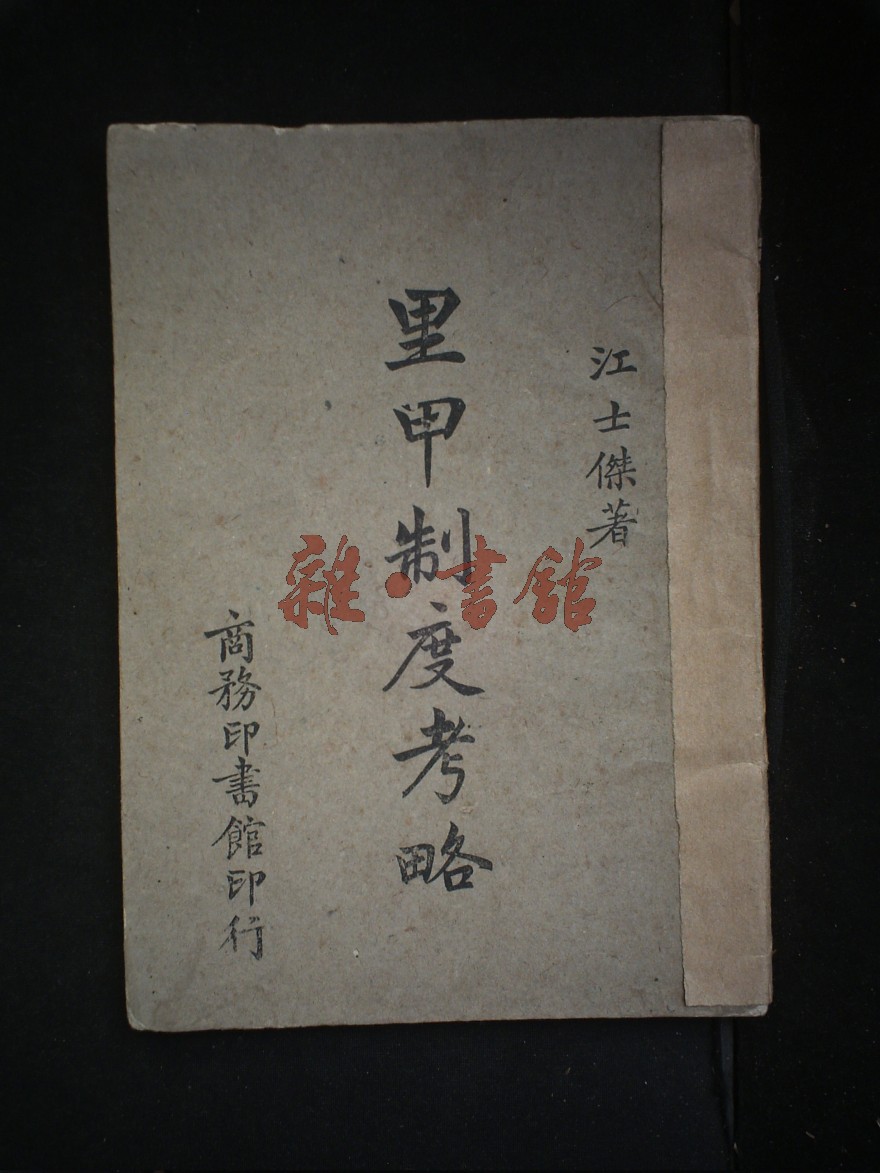 江士傑著
里甲制度考略
商務印書館印行
雜·書館